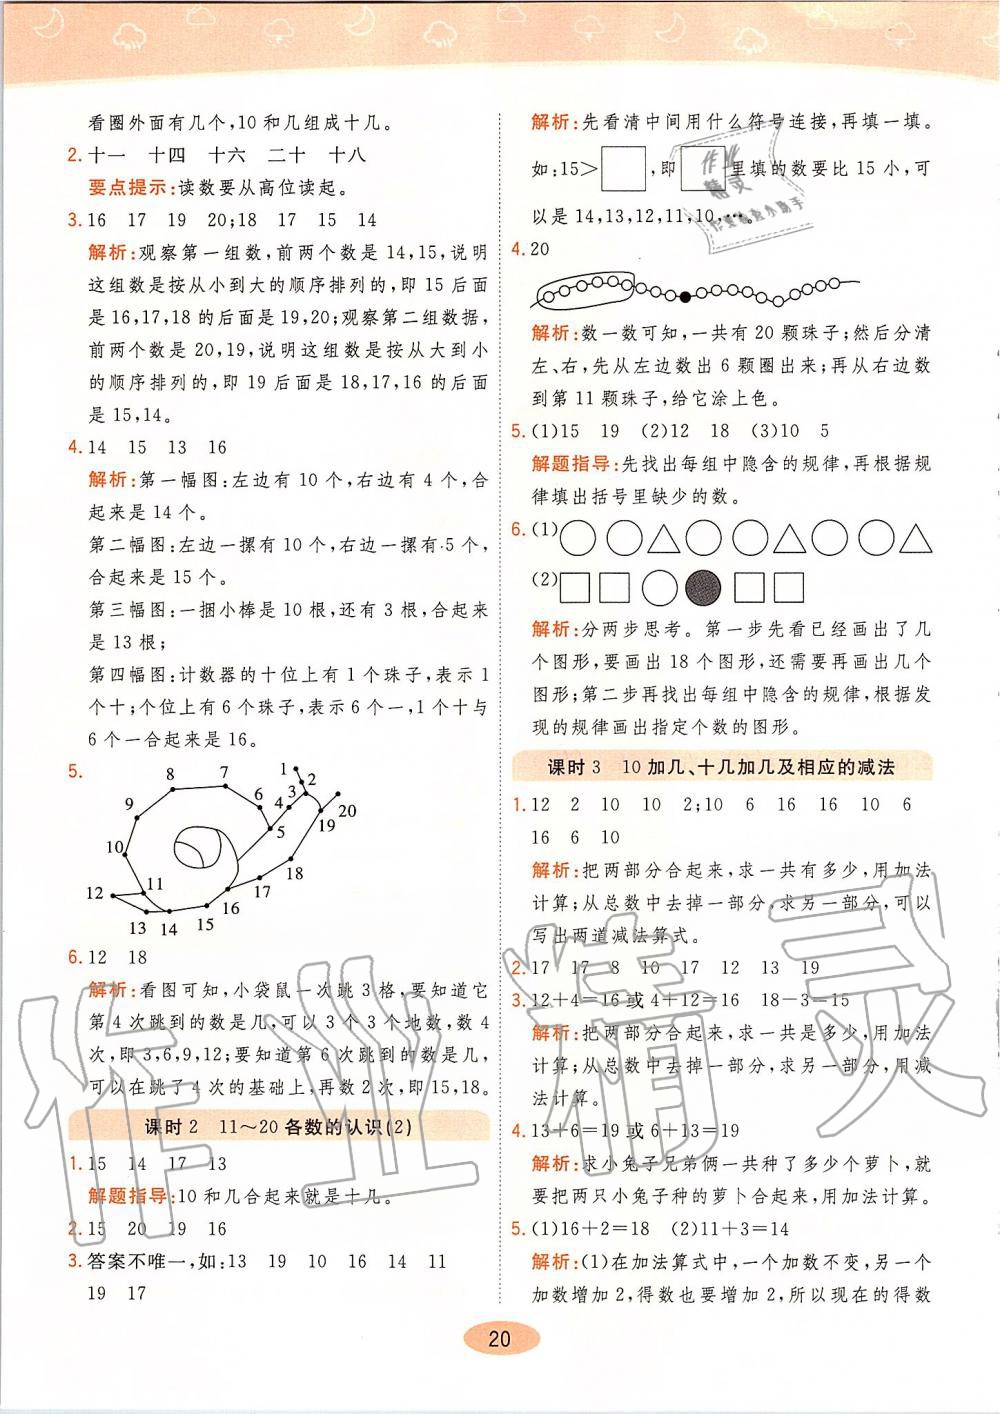 看圈外面有几个,10和几组成十几。
2.十一 十四 十六 二十 十八
要点提示:读数要从高位读起。
3.16 17 19 20;18 17 15 14
解析:观察第一组数,前两个数是14,15,说明
这组数是按从小到大的顺序排列的,即15后面
是16,17,18的后面是19,20;观察第二组数据,
前两个数是20,19,说明这组数是按从大到小
的顺序排列的,即19后面是18,17,16的后面
是15,14。
4.14 15 13 16
解析:第一幅图:左边有10个,右边有4个,合
起来是14个。
第二幅图:左边一摞有10个,右边一摞有5个,
合起来是15个。
第三幅图:一捆小棒是10根,还有3根,合起来
是13根;
第四幅图:计数器的十位上有1个珠子,表示1
个十;个位上有6个珠子,表示6个一,1个十与
6个一合起来是16。
5.
1
2
3
4
5
6
7
8
9
10
11
12
13
14
15
16
17
18
19
20
6.12 18
解析:看图可知,小袋鼠一次跳3格,要知道它
第4次跳到的数是几,可以3个3个地数,数4
次,即3,6,9,12;要知道第6次跳到的数是几,
可以在跳了4次的基础上,再数2次,即15,18。
课时2 11~20各数的认识(2)
1.15 14 17 13
解题指导:10和几合起来就是十几。
2.15 20 19 16
3.答案不唯一,如:13 19 10 16 14 11
19 17
解析:先看清中间用什么符号连接,再填一填。
如:15>□,即□里填的数要比15小,可
以是14,13,12,11,10,…。
4.20
解析:数一数可知,一共有20颗珠子;然后分清
左、右,先从左边数出6颗圈出来;再从右边数
到第11颗珠子,给它涂上色。
5.(1)15 19 (2)12 18 (3)10 5
解题指导:先找出每组中隐含的规律,再根据规
律填出括号里缺少的数。
6.(1)○○△○○△○○△
(2)□□○●□□
解析:分两步思考。第一步先看已经画出了几
个图形,要画出18个图形,还需要再画出几个
图形;第二步再找出每组中隐含的规律,根据发
现的规律画出指定个数的图形。
课时3 10加几、十几加几及相应的减法
1.12 2 10 10 2;10 6 16 16 10 6
16 6 10
解析:把两部分合起来,求一共有多少,用加法
计算;从总数中去掉一部分,求另一部分,可以
写出两道减法算式。
2.17 17 8 10 17 12 13 19
3.12+4=16或4+12=16 18-3=15
解析:把两部分合起来,求一共是多少,用加法
计算;从总数中去掉一部分,求另一部分,用减
法计算。
4.13+6=19或6+13=19
解析:求小兔子兄弟俩一共种了多少个萝卜,就
要把两只小兔子种的萝卜合起来,用加法计算。
5.(1)16+2=18 (2)11+3=14
解析:(1)在加法算式中,一个加数不变,另一个
加数增加2,得数也要增加2,所以现在的得数
20
作业精灵
作业精灵